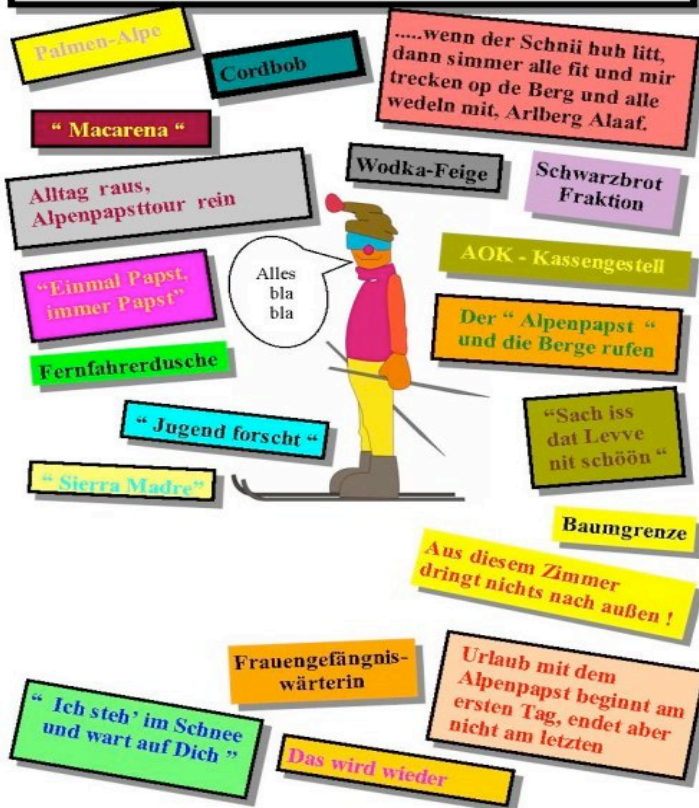 Palmen-Alpe
Cordbob
.....wenn der Schnii huh litt,
dann simmer alle fit und mir
trecken op de Berg und alle
wedeln mit, Arlberg Alaaf.
“ Macarena “
Wodka-Feige
Schwarzbrot
Fraktion
Alltag raus,
Alpenpapsttour rein
Alles
bla
bla
AOK - Kassengestell
“Einmal Papst,
immer Papst”
Der “ Alpenpapst “
und die Berge rufen
Fernfahrerdusche
“ Jugend forscht “
“Sach iss
dat Levve
nit schöön “
“ Sierra Madre”
Baumgrenze
Aus diesem Zimmer
dringt nichts nach außen !
Frauengefängnis-
wärterin
Urlaub mit dem
Alpenpapst beginnt am
ersten Tag, endet aber
nicht am letzten
“ Ich steh’ im Schnee
und wart auf Dich ”
Das wird wieder